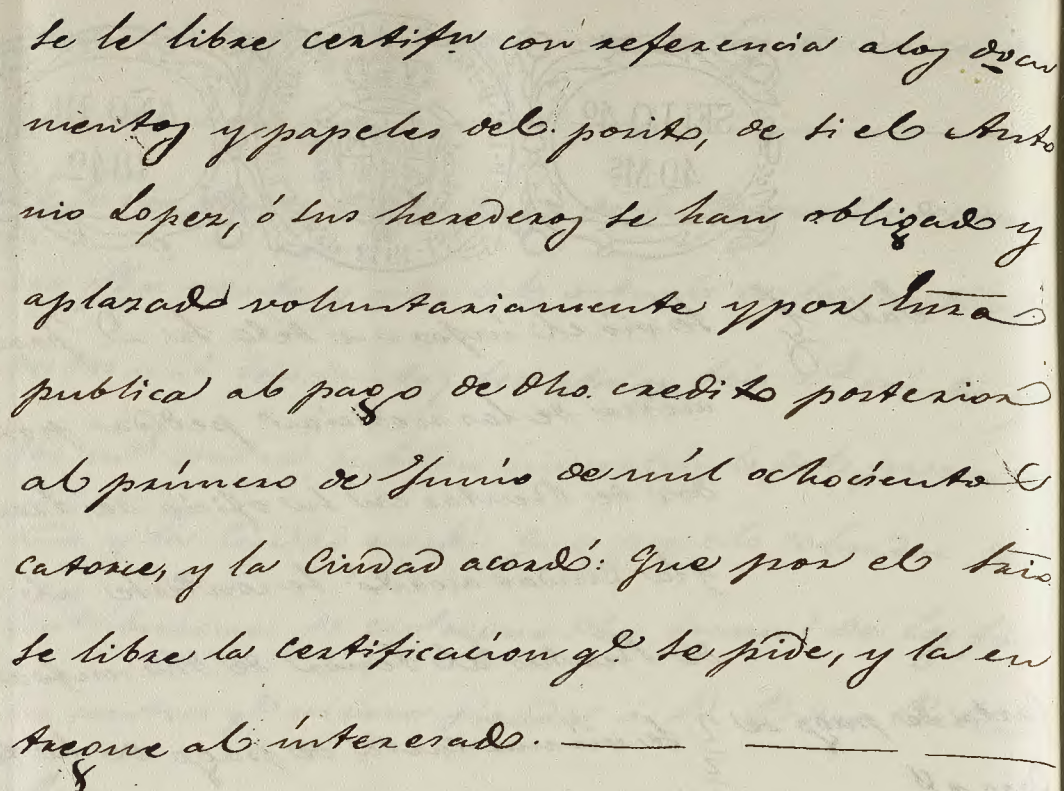 se le libre certifn con referencia a los docu
mentos y papeles del posito, de si el Anto
nio Lopez, ó sus herederos se han obligado y
aplazado voluntariamente y por Esxra
publica al pago de dho. credito posterior
al primero de Junio de mil ochocientos
catorce, y la Ciudad acordó: Que por el Srio.
se libre la certificacion qe. se pide, y la en
tregue al interesado.